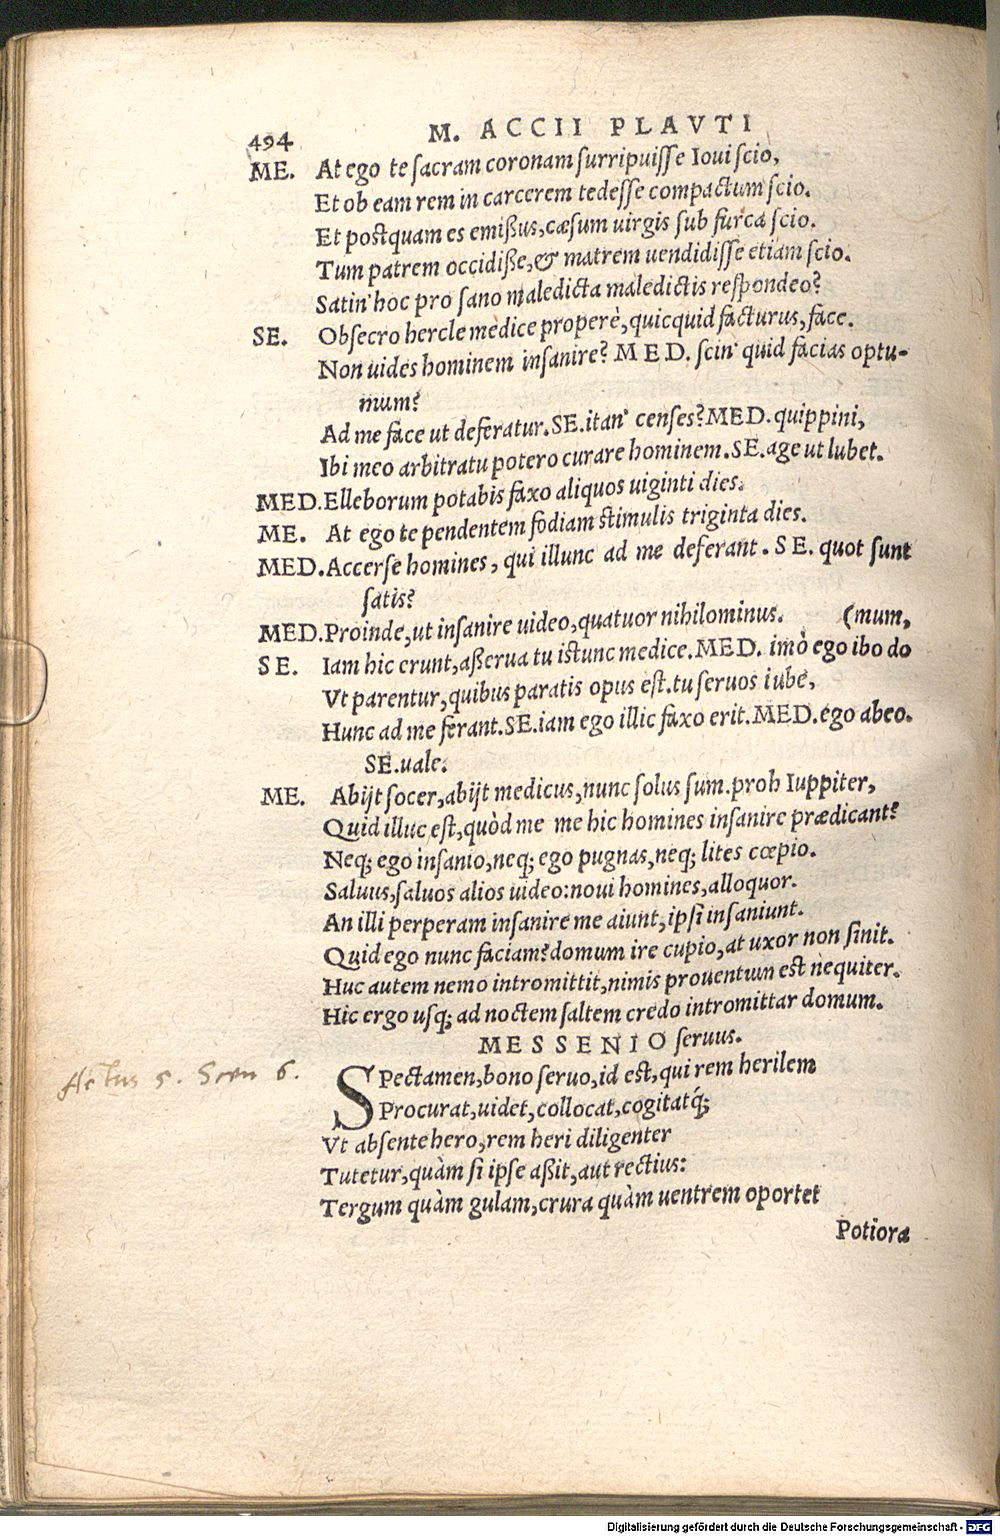 494 M. ACCII PLAVTI
ME. At ego te sacram coronam surripuisse Ioui scio,
Et ob eam rem in carcerem tedesse compactum scio.
Et postquam es emißus, cæsum uirgis sub furca scio.
Tum patrem occidiße, & matrem uendidisse etiam scio.
Satin' hoc pro sano maledicta maledictis respondeo?
SE. Obsecro hercle medice properè, quicquid facturus, face.
Non uides hominem insanire? MED. scin' quid facias optu-
mum?
Ad me face ut deferatur. SE. itan' censes? MED. quippini,
Ibi meo arbitratu potero curare hominem. SE. age ut lubet.
MED. Elleborum potabis faxo aliquos uiginti dies.
ME. At ego te pendentem fodiam stimulis triginta dies.
MED. Accerse homines, qui illunc ad me deferant. SE. quot sunt
satis?
MED. Proinde, ut insanire uideo, quatuor nihilominus. (mum,
SE. Iam hic erunt, aßerua tu istunc medice. MED. imò ego ibo do
Vt parentur, quibus paratis opus est. tu seruos iube,
Hunc ad me ferant. SE. iam ego illic faxo erit. MED. ego abeo.
SE. uale.
ME. Abijt socer, abijt medicus, nunc solus sum. proh Iuppiter,
Quid illuc est, quòd me me hic homines insanire prædicant?
Neq; ego insanio, neq; ego pugnas, neq; lites cœpio.
Saluus, saluos alios uideo: noui homines, alloquor.
An illi perperam insanire me aiunt, ipsi insaniunt.
Quid ego nunc faciam? domum ire cupio, at uxor non sinit.
Huc autem nemo intromittit, nimis prouentum est nequiter.
Hic ergo usq; ad noctem saltem credo intromittar domum.
MESSENIO seruus.
Actus 5. Scen 6.
SPectamen, bono seruo, id est, qui rem herilem
Procurat, uidet, collocat, cogitatq́;
Vt absente hero, rem heri diligenter
Tutetur, quàm si ipse aßit, aut rectius:
Tergum quàm gulam, crura quàm uentrem oportet
Potiora
Digitalisierung gefördert durch die Deutsche Forschungsgemeinschaft - DFG